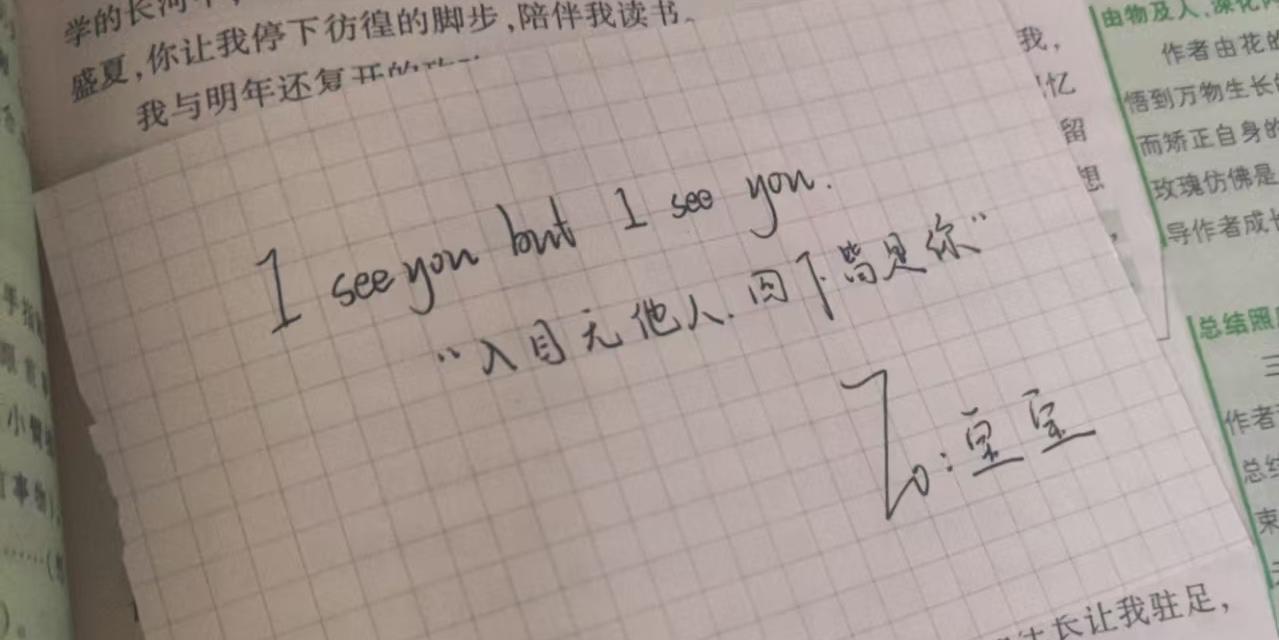 学的长河
盛夏,你让我停下彷徨的脚步,陪伴我读书。
我与明年还复开的玫
我,
忆
留
想
I see you but I see you.
“入目无他人.四下皆是你”
To:豆豆
由物及人、深化
作者由花的
悟到万物生长的
而矫正自身的
玫瑰仿佛是
导作者成长
总结照
三
作者
总结
束
手指
小
事物
长让我驻足,